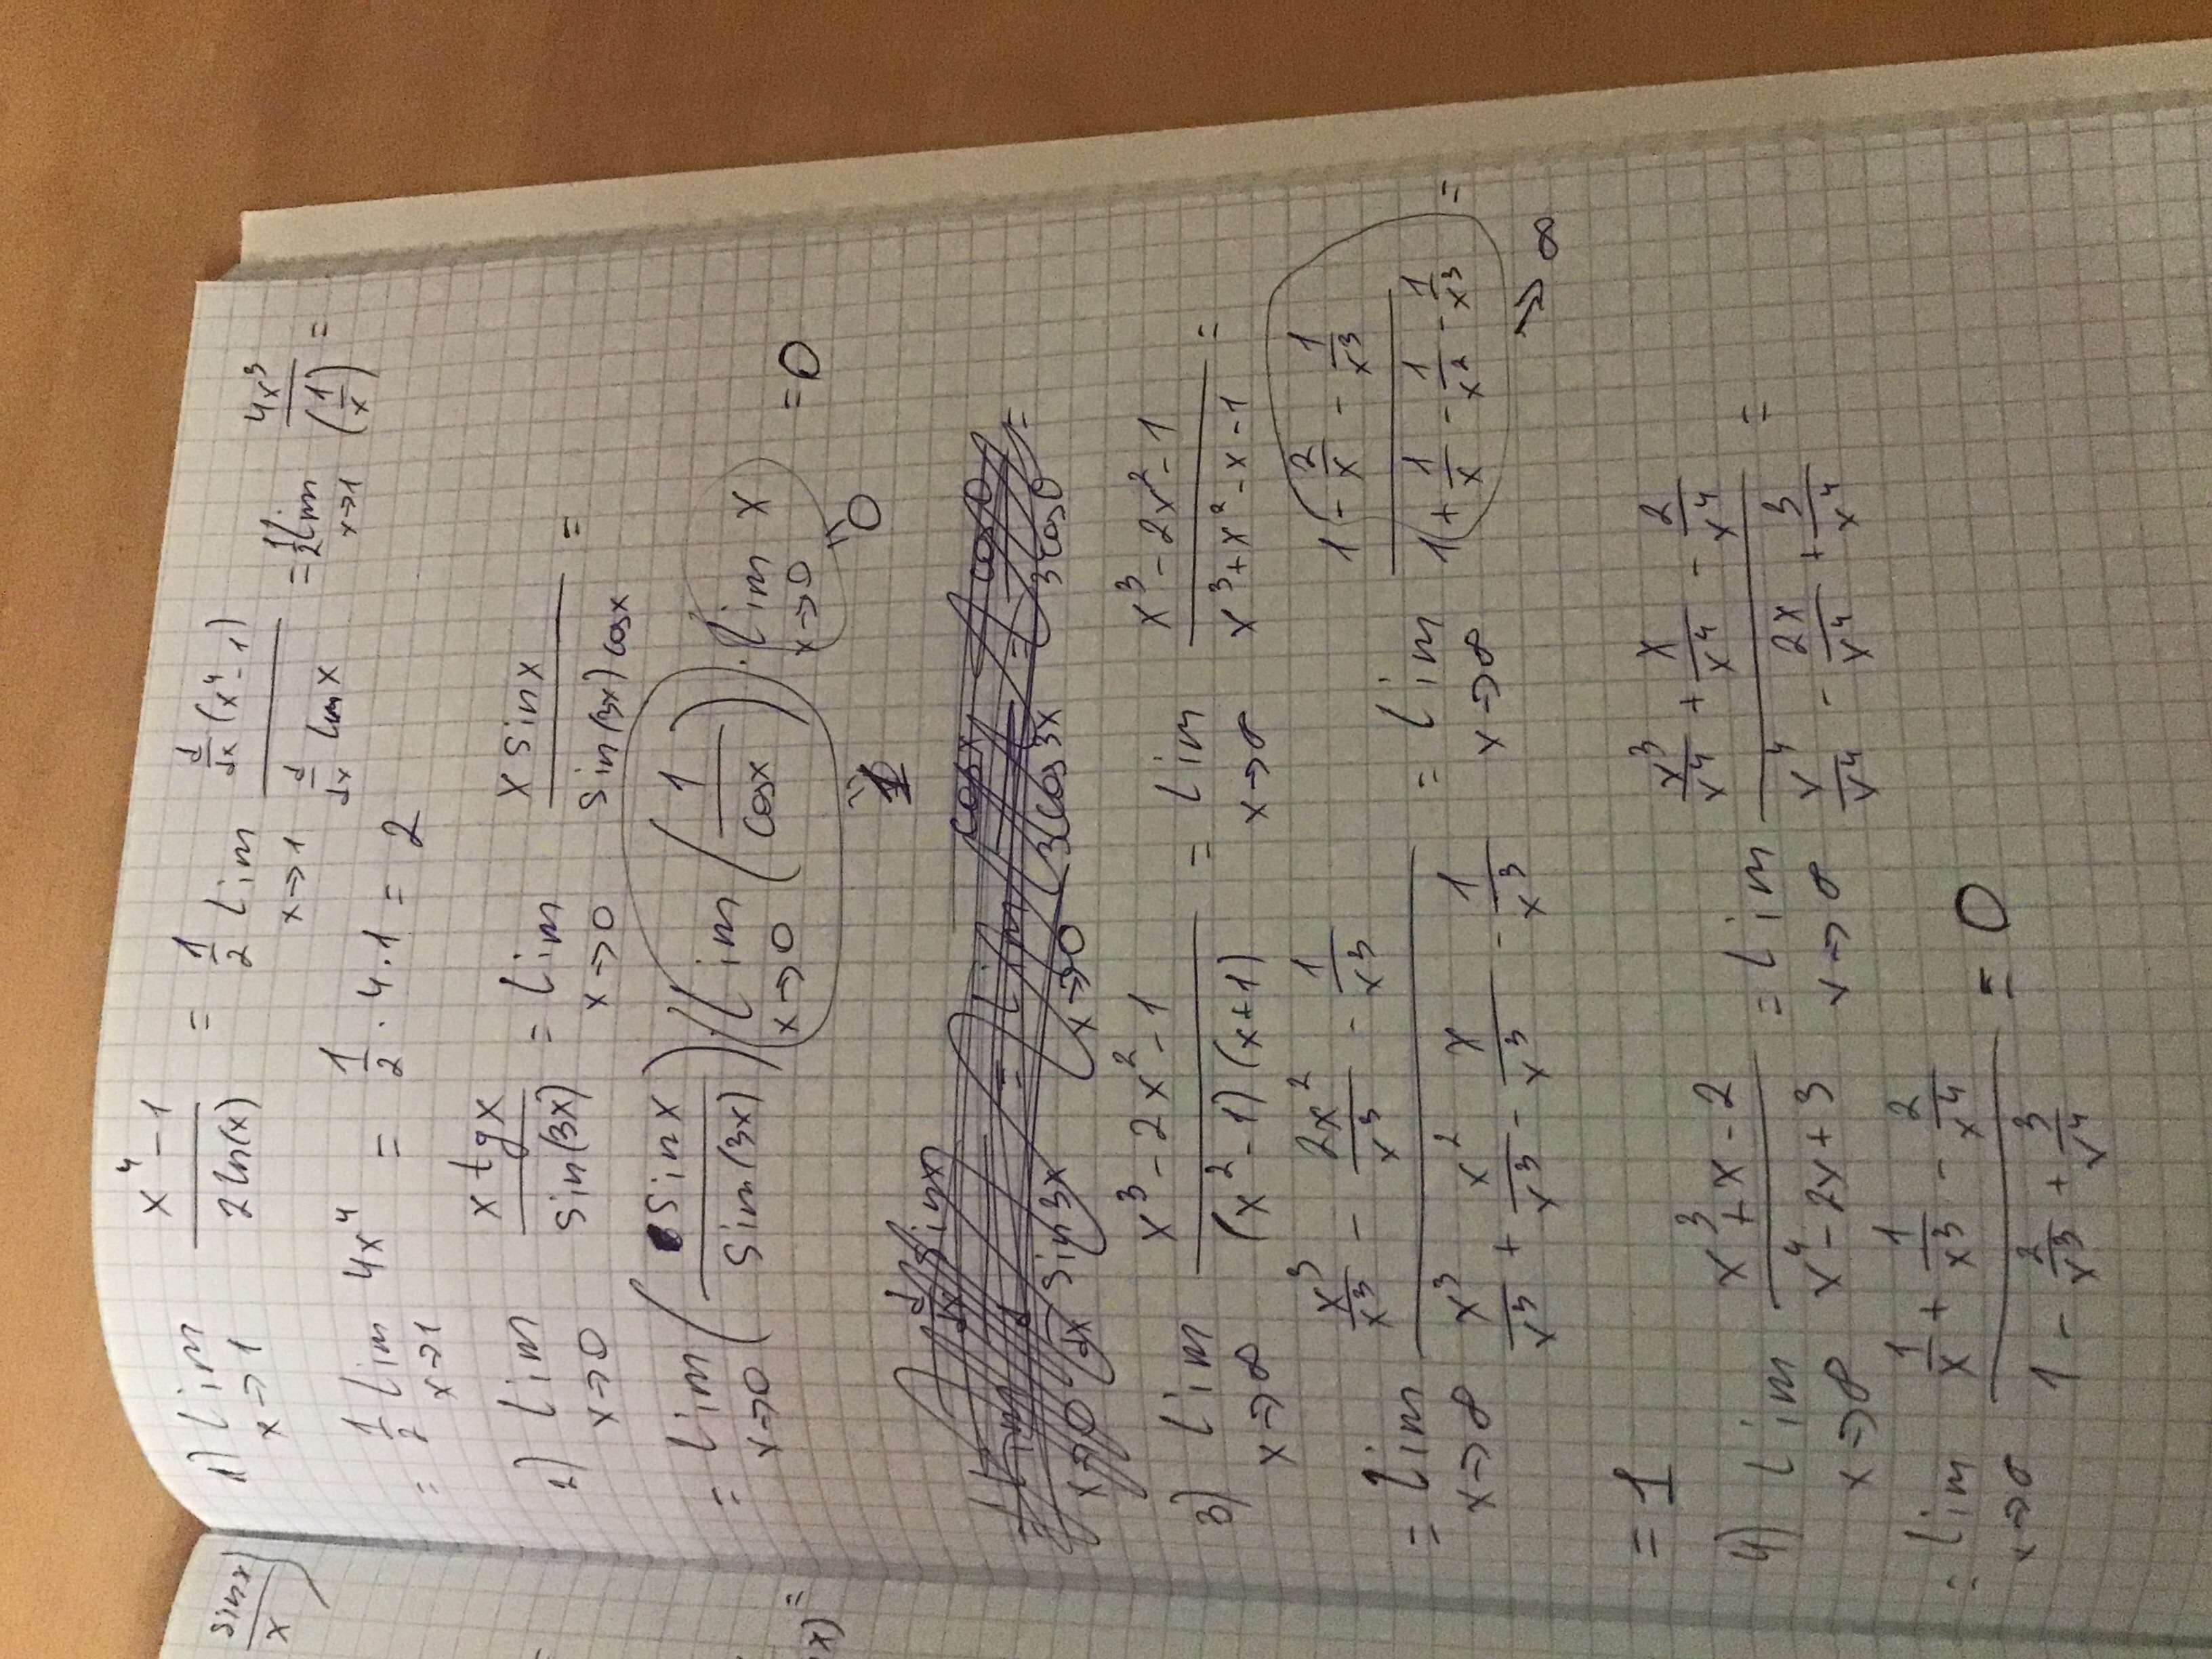 sinx/x
x) =
1) lim x→1 (x⁴-1)/(2ln(x)) = 1/2 lim x→1 (d/dx (x⁴-1))/(d/dx lnx) = 1/2 lim x→1 4x³/(1/x) =
= 1/2 lim x→1 4x⁴ = 1/2 · 4 · 1 = 2
2) lim x→0 (x tgx)/(sin(3x)) = lim x→0 (x sinx)/(sin(3x) cosx) =
= lim x→0 (sinx/sin(3x)) · (lim x→0 (1/cosx)) · lim x→0 x = 0
1
0
3) lim x→∞ (x³-2x²-1)/((x²-1)(x+1)) = lim x→∞ (x³-2x²-1)/(x³+x²-x-1) =
= lim x→∞ (x³/x³ - 2x²/x³ - 1/x³)/(x³/x³ + x²/x³ - x/x³ - 1/x³) = lim x→∞ (1 - 2/x - 1/x³)/(1 + 1/x - 1/x² - 1/x³) =
→ ∞
= 1
4) lim x→∞ (x³+x-2)/(x⁴-2x+3) = lim x→∞ (x³/x⁴ + x/x⁴ - 2/x⁴)/(x⁴/x⁴ - 2x/x⁴ + 3/x⁴) =
= lim x→∞ (1/x + 1/x³ - 2/x⁴)/(1 - 2/x³ + 3/x⁴) = 0